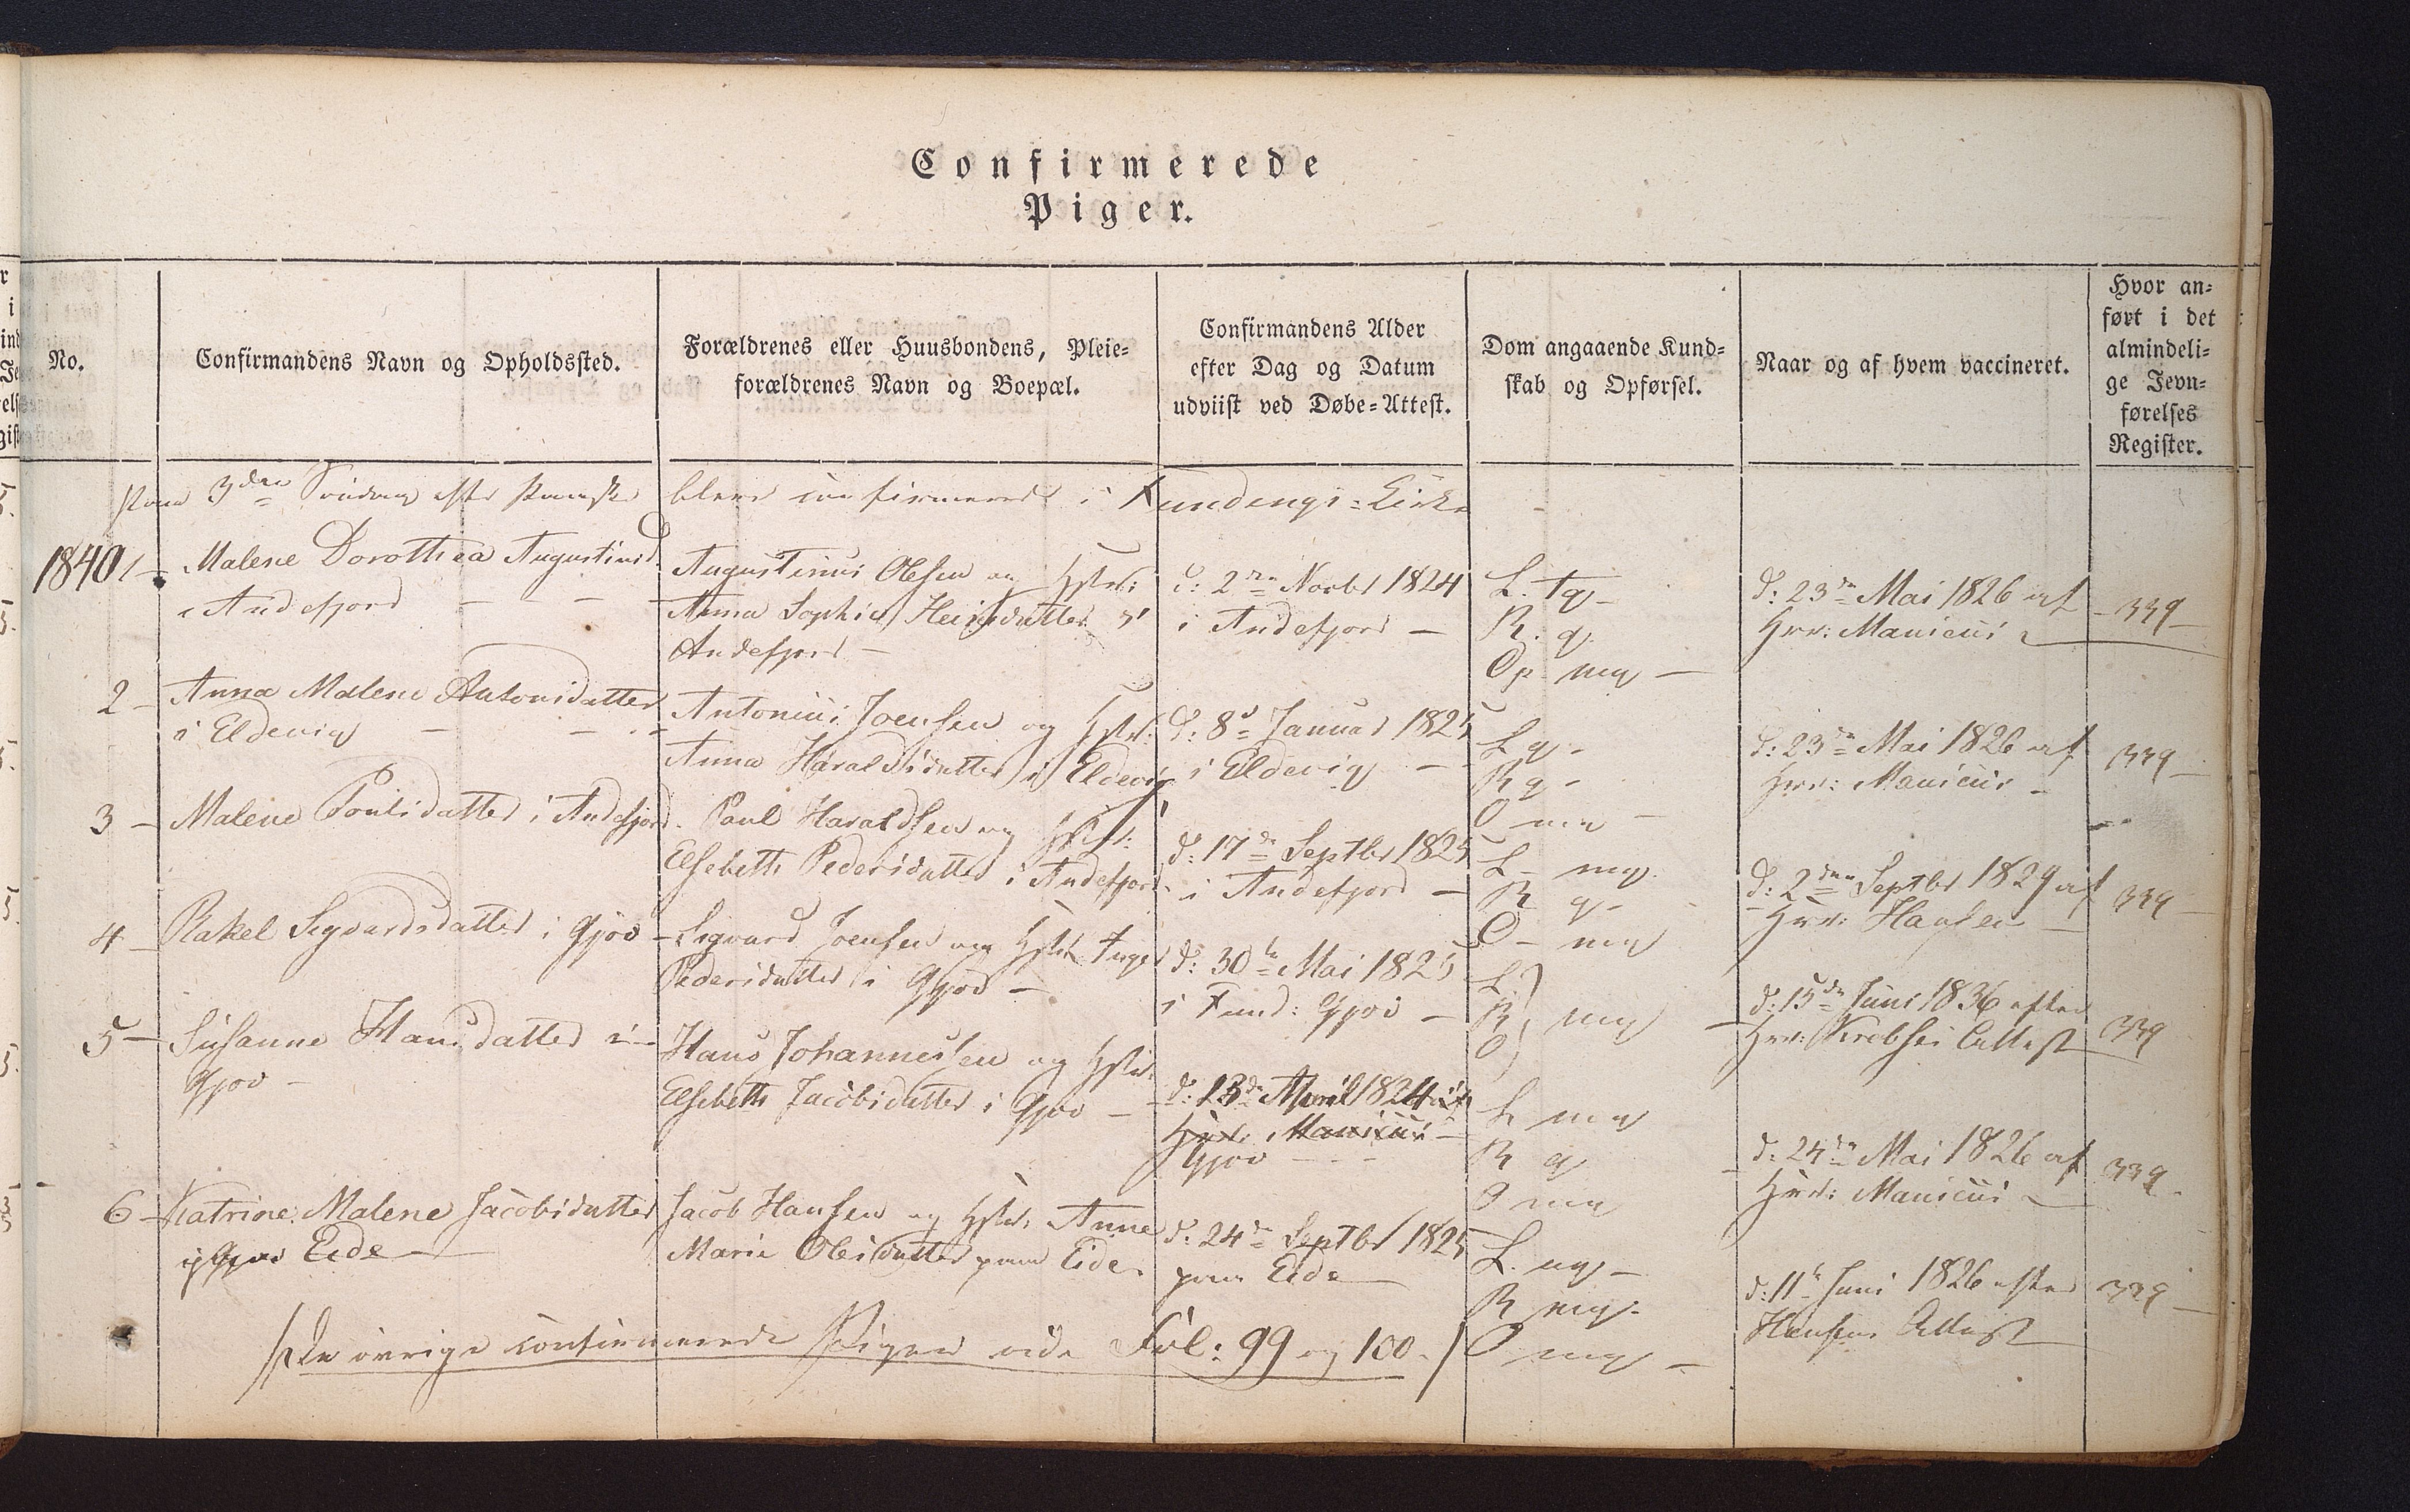 Confirmerede
Piger.
No.
Confirmandens Navn og Opholdssted.
Forældrenes eller Huusbondens, Pleie=
forældrenes Navn og Boepæl.
Confirmandens Alder
efter Dag og Datum
udviist ved Døbe=Attest.
Dom angaaende Kund=
skab og Opførsel.
Naar og af hvem vaccineret.
Hvor an=
ført i det
almindeli=
ge Jevn=
førelses
Register.
Paa 3die Søndag efter Paaske bleve confirmerede i Fundengs=Kirke
1840 1 –
Malene Dorothea Augustinsd.
i Andefjord
Augustinus Olesen og Hstr:
Anna Sophia Heinsdatter i
Andefjord –
d: 2den Novbr 1824
i Andefjord –
L. tg –
R. g.
Op mg –
d: 23de Mai 1826 af
Hrr: Manicus
339
2 –
Anna Malene Antonisdatter
i Eldevig
Antonius Joensen og Hstr:
Anna Haraldsdatter i Eldevig
d: 8d Januar 1825
i Eldevig –
L g –
R g –
O mg –
d: 23de Mai 1826 af
Hrr: Manicus –
339
3 –
Malene Poulsdatter i Andefjord.
Paul Haraldsen og Hstr:
Elsebeth Pedersdatter i Andefjord.
d: 17de Septbr 1825
i Andefjord –
L – mg.
R g –
O – mg
d: 2den Septbr 1829 af
Hrr: Hansen –
339
4 –
Rakel Sigvardsdatter i Gjov –
Sigvard Joensen og Hstr Inger
Pedersdatter i Gjov –
d: 30te Mai 1825
i Fund: Gjov –
L
R mg
O
d: 15de Juni 1836 efter
Hrr: Attest
339
5 –
Susanne Hansdatter i
Gjov –
Hans Johannesen og Hstr:
Elsebeth Jacobsdatter i Gjov –
d: 13de April 1824 i
Hrr: Manicus –
Gjov
L mg
R g
O mg
d: 24de Mai 1826 af
Hrr: Manicus
339
6 –
Katrine Malene Jacobsdatter
i Gjov Eide –
Jacob Hansen og Hstr: Anne
Marie Olesdatter paa Eide.
d: 24de Septbr 1825
paa Eide –
L. mg –
R mg –
O mg –
d: 11te Juni 1826 efter
Hansens Attest
339
/: De övrige confirmerede Piger vide Fol: 99 og 100. /